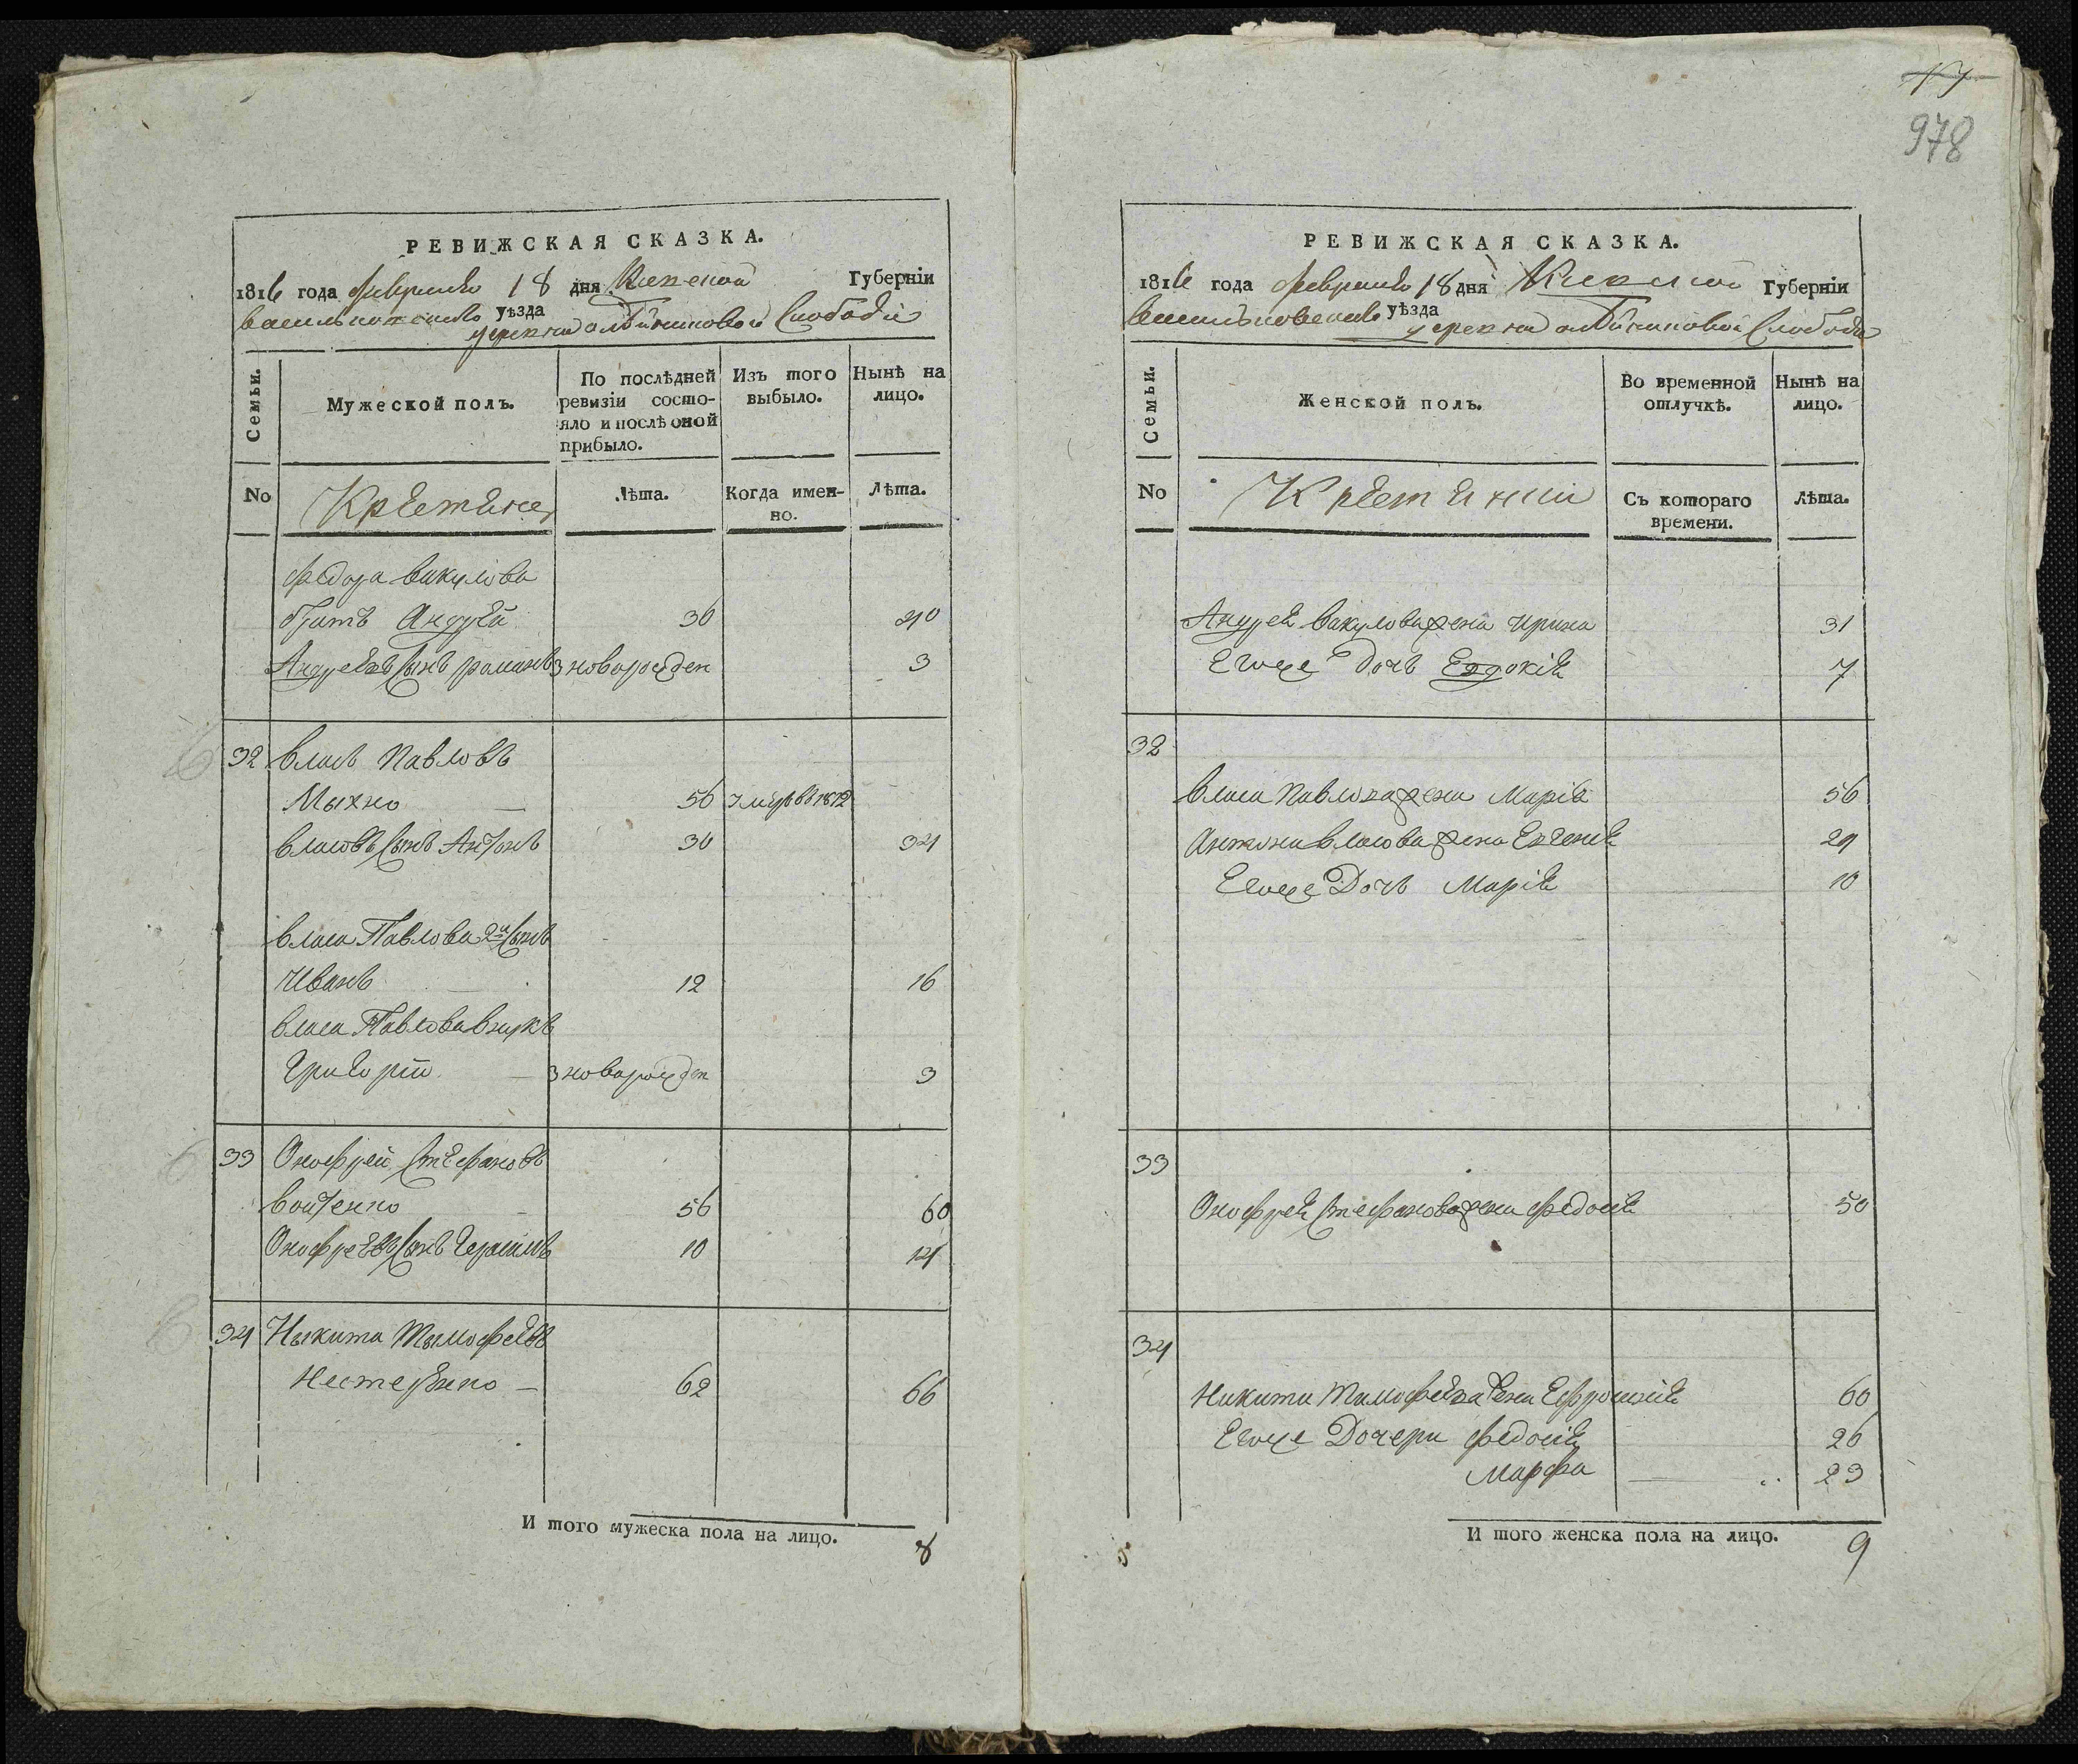 17
978
РЕВИЖСКАЯ СКАЗКА.
1816 года февраля 18 дня Киевской Губерніи
васильковского уѣзда
Слободи
Семьи.
Мужеской полъ.
По послѣдней ревизіи состояло и послѣ оной прибыло.
Изъ того выбыло.
Нынѣ на лицо.
No
Крестяне
Лѣта.
Когда именно.
Лѣта.
федора вакулова
братъ Андрей 36 40
Андреевъ сынъ романъ новорожден 3
32 власъ Павловъ
Мыхно — 56 умре в 1812
власовъ сынъ Антонъ 30 34
власа Павлова 2й сынъ
Иванъ 12 16
власа Павлова внукъ
Григорій — новорожден 3
33 Онофрей Стефановъ
войтенко 56 60
Онофреевъ сынъ Герасимъ 10 14
34 Ныкита Тымофеевъ
Нестеренко — 62 66
И того мужеска пола на лицо. 8
РЕВИЖСКАЯ СКАЗКА.
1816 года февраля 18 дня Киевской Губерніи
васильковского уѣзда
Слободи
Семьи.
Женской полъ.
Во временной отлучкѣ.
Нынѣ на лицо.
No
Крестянки
Съ котораго времени.
Лѣта.
Андрея вакулова жена ирина 31
Егоже дочь Евдокія 7
32
власа Павлова жена Марія 56
Антона власова жена Евгенія 29
Егоже Дочь Марія 10
33
Онофрея Стефанова жена федосія 50
34
Никити Тимофеева жена Ефросинія 60
Егоже Дочери федосія 26
Марфа 23
И того женска пола на лицо. 9